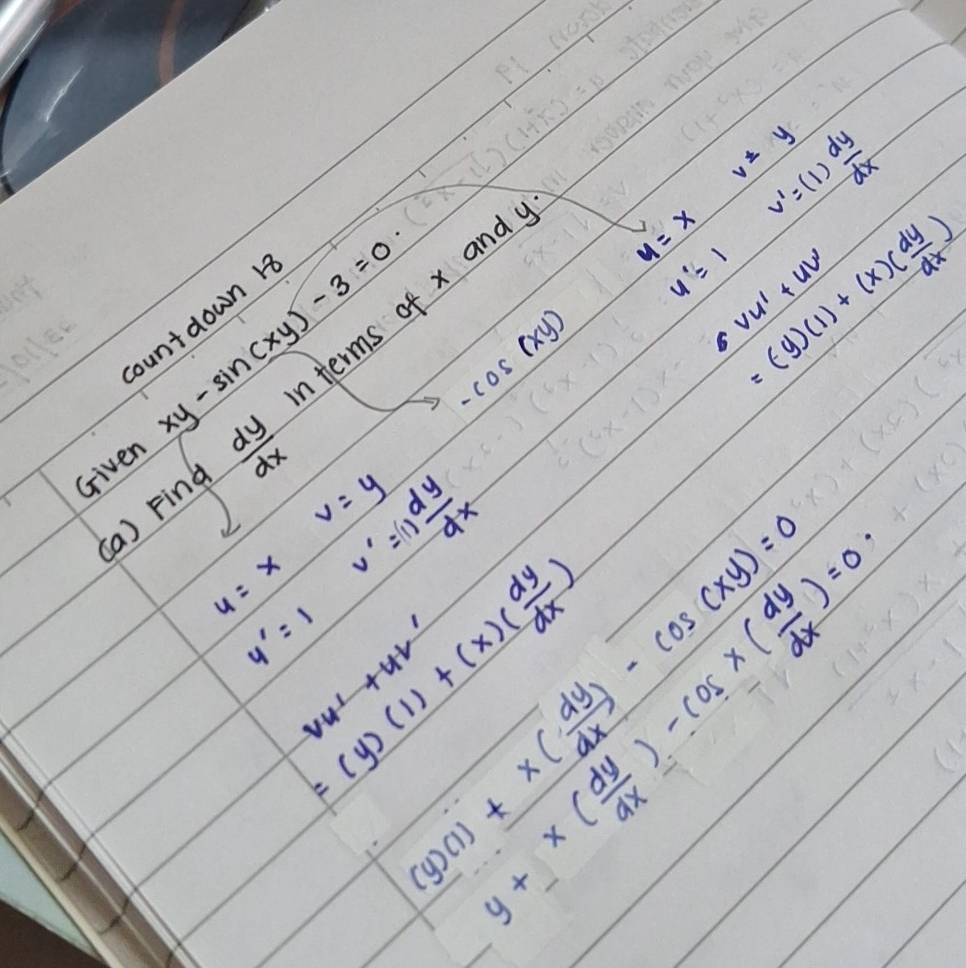 countdown 18
Given xy - sin(xy) - 3 = 0.
(a) Find dy/dx in terms of x and y.
u = x v = y
u' = 1 v' = (1) dy/dx
vu' + uv'
= (y)(1) + (x)(dy/dx)
-cos (xy)
u = x v = y
u' = 1 v' = (1) dy/dx
vu' + uv'
= (y)(1) + (x)(dy/dx)
(y)(1) + x(dy/dx) - cos (xy) = 0
y + x(dy/dx) - cos x(dy/dx) = 0.